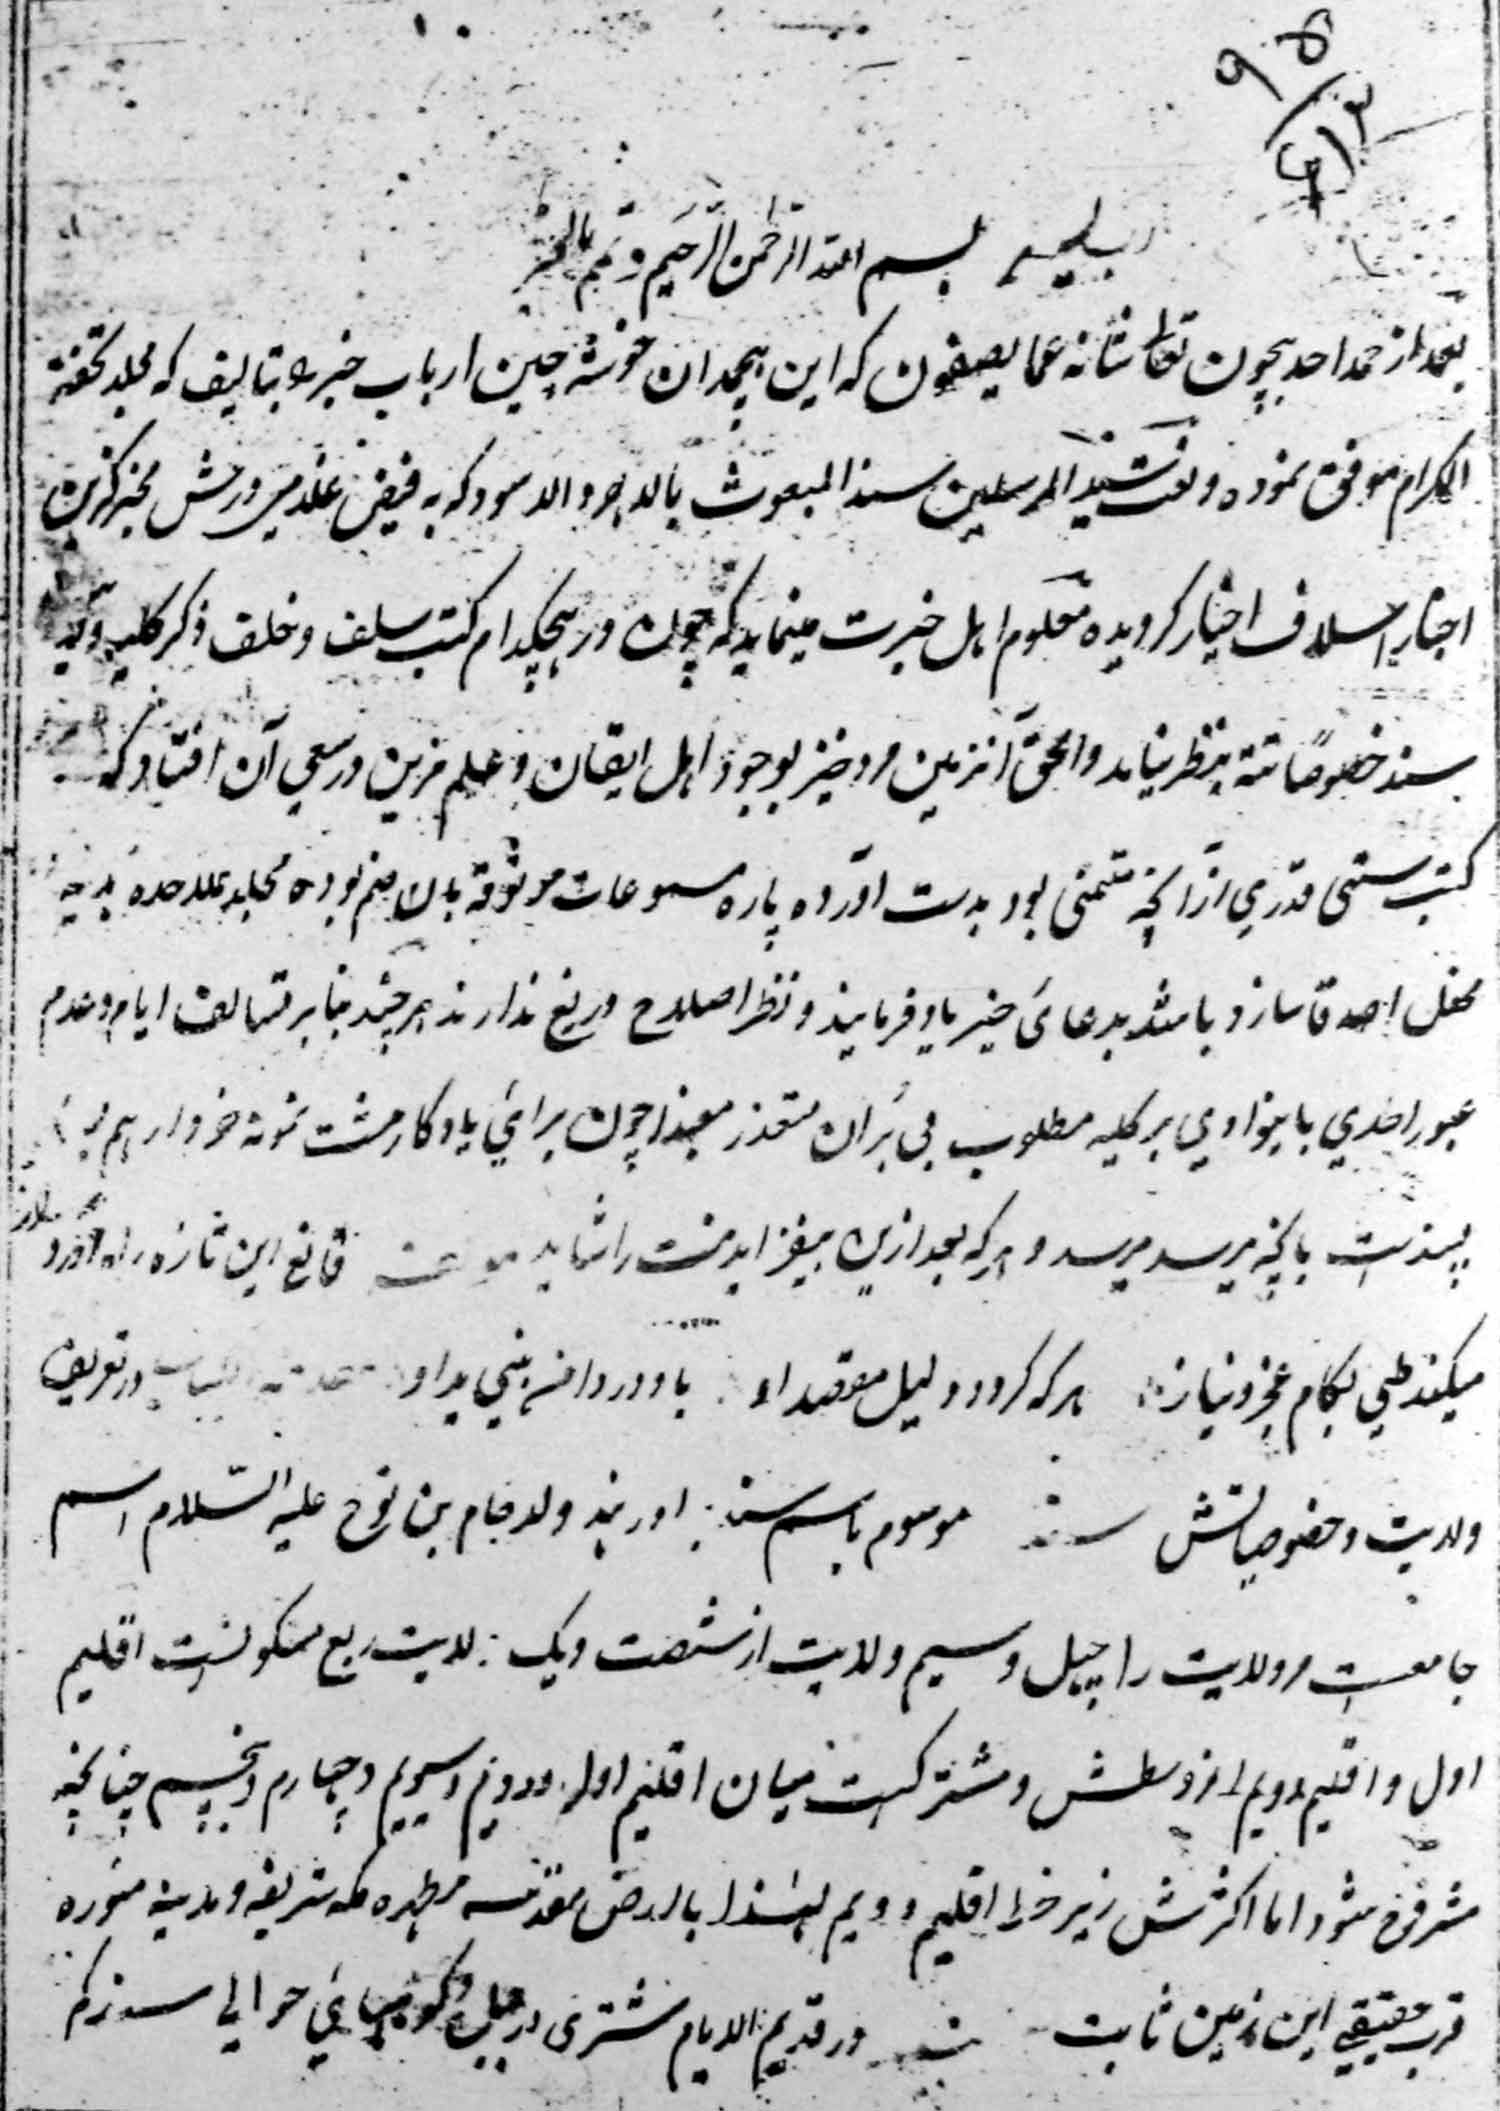 بسم الله الرحمن الرحیم و تمم بالخیر
بعد از حمد احد بیچون تعالی شانه عما یصفون که این هیچمدان خوشه چین ارباب خبر را بتالیف که مجلد تحفة
الکرام موفق نموده و نعت سید المرسلین سند المبعوث بالاحمر و الاسود که به فیض غلامی درش مخبر گزین
اخبار اسلاف اخیار گردیده معلوم اهل خبرت مینماید که چون در هیچکدام کتب سلف و خلف ذکر کلیه
سند خصوصا تته بنظر نیامد و الحق آنزمین مردخیز بوجود اهل ایقان و علم مزین در سعی آن افتاد که
کتب ستی قدری از آنچه متمنی بود بدست آورده پاره مسموعات موثوقه بان ضم نموده مجلد علاحده هدیه
محفل اصدقا سازد باشد بدعای خیر یاد فرمایند و نظر اصلاح دریغ ندارند هر چند بنابر تخالف ایام و عدم
عبور احدی با بنوادی بر کلیه مطلوب بی بران متعذر معهذا چون برای یادکار مشت نمونه خروار هم
پسندست بآنچه میرسد میرسد و هر که بعد ازین بیفزاید منت را شاید قانع این تازه ره آورد
میکند طی بکام عجز و نیاز هر که کردد دلیل مقصد او یاور در تعریف
ولایت و خصوصیاتش سند موسوم باسم سند برادر هند ولد حام بن نوح علیه السلام اسم
جامعست مر ولایت را چهل و سیم ولایت از شصت و یک ولایت ربع مسکونست اقلیم
اول و اقلیم دویم از وسطش و مشترکست میان اقلیم اول و دویم و سیویم و چهارم و پنجم چنانچه
مشروح شود اما اکثرش زیر خط اقلیم دویم لهذا بالارض مقدسه مطهره مکه شریفه و مدینه منوره
قرب حقیقی این زمین ثابت در قدیم الایام حوالی